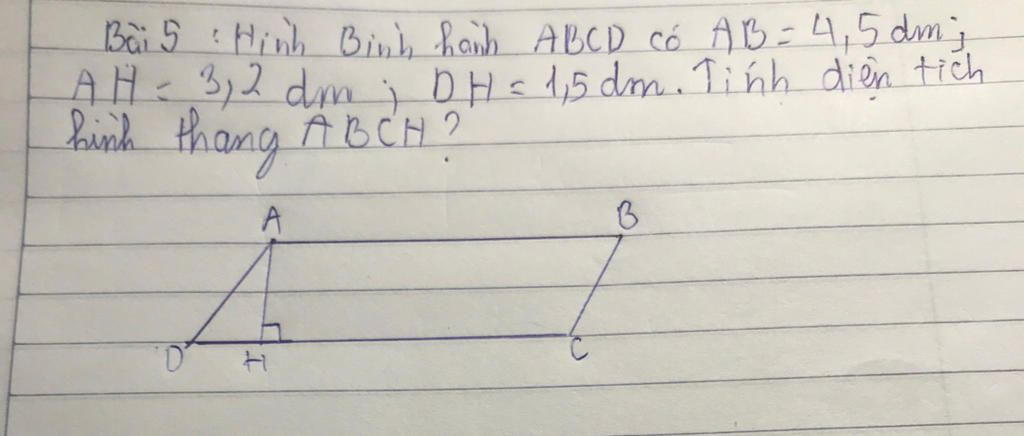 Bài 5 : Hình Bình hành ABCD có AB = 4,5 dm;
AH = 3,2 dm; DH = 1,5 dm. Tính diện tích
hình thang ABCH?
A
B
D
H
C